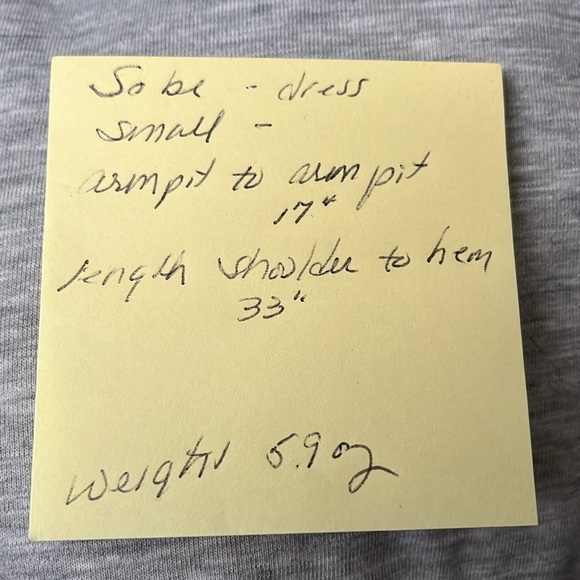 Sobe - dress
small -
armpit to armpit
17"
length shoulder to hem
33"
weight 5.9 oz